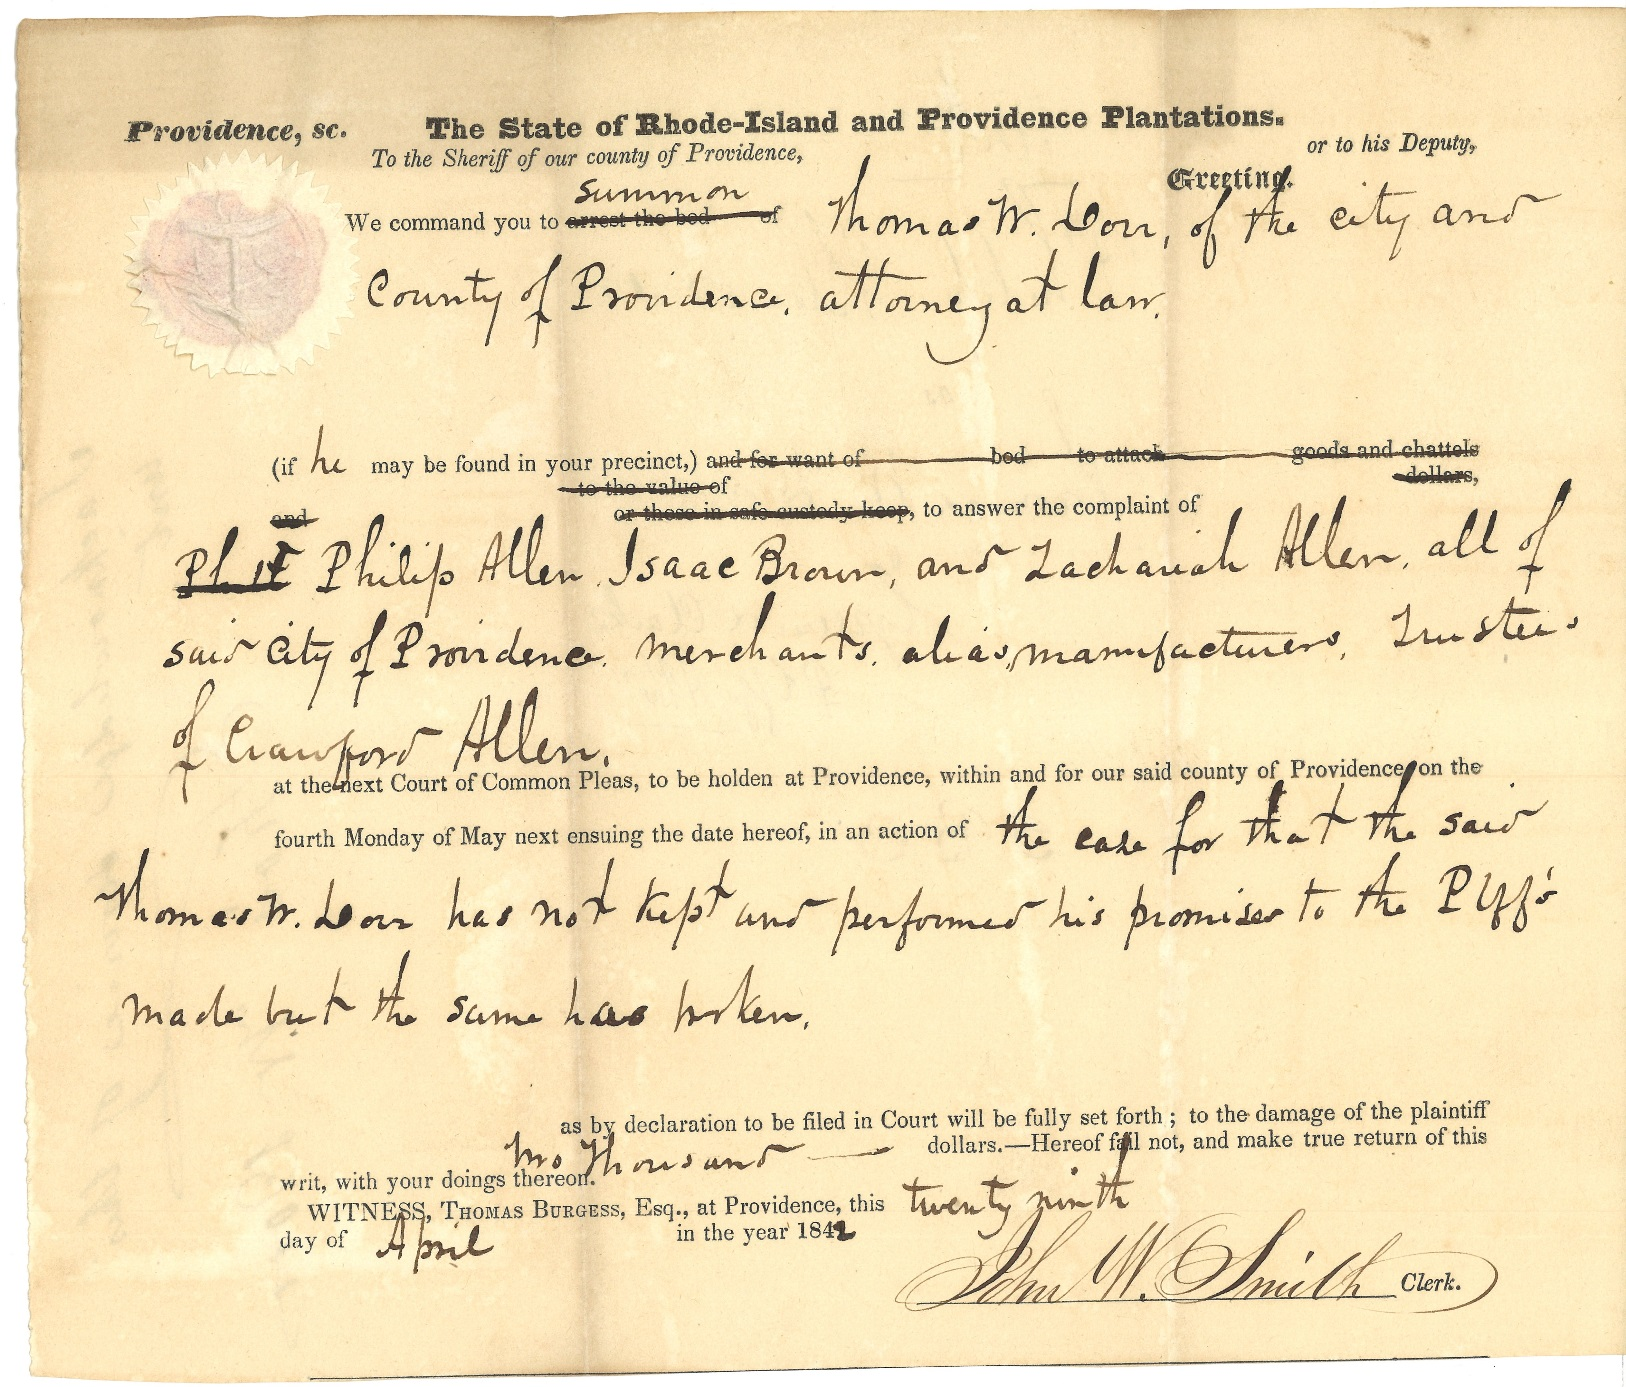 Providence, sc. The State of Rhode-Island and Providence Plantations.
To the Sheriff of our county of Providence, or to his Deputy,
Greeting.
summon
We command you to arrest the bod of Thomas W. Dorr, of the city and
County of Providence, attorney at law.
(if he may be found in your precinct,) and for want of bod to attach goods and chattels
to the value of dollars,
and or those in safe custody keep, to answer the complaint of
Philip Allen, Isaac Brown, and Zachariah Allen, all of
said City of Providence, merchants, alias, manufacturers, Trustees
of Crawford Allen,
at the next Court of Common Pleas, to be holden at Providence, within and for our said county of Providence, on the
fourth Monday of May next ensuing the date hereof, in an action of the case for that the said
Thomas W. Dorr has not kept and performed his promises to the Plffs
made but the same has broken.
as by declaration to be filed in Court will be fully set forth ; to the damage of the plaintiff
two Thousand dollars.—Hereof fail not, and make true return of this
writ, with your doings thereon.
WITNESS, THOMAS BURGESS, Esq., at Providence, this twenty ninth
day of April in the year 1842
John W. Smith Clerk.